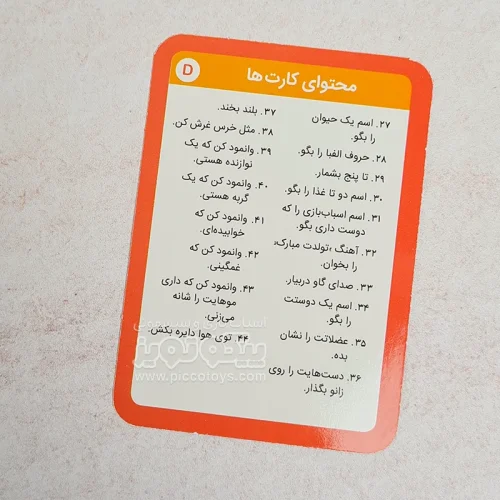 محتوای کارت‌ها
D
۲۷. اسم یک حیوان
را بگو.
۲۸. حروف الفبا را بگو.
۲۹. تا پنج بشمار.
۳۰. اسم دو تا غذا را بگو.
۳۱. اسم اسباب‌بازی را که
دوست داری بگو.
۳۲. آهنگ «تولدت مبارک»
را بخوان.
۳۳. صدای گاو دربیار.
۳۴. اسم یک دوستت
را بگو.
۳۵. عضلاتت را نشان
بده.
۳۶. دست‌هایت را روی
زانو بگذار.
۳۷. بلند بخند.
۳۸. مثل خرس غرش کن.
۳۹. وانمود کن که یک
نوازنده هستی.
۴۰. وانمود کن که یک
گربه هستی.
۴۱. وانمود کن که
خوابیده‌ای.
۴۲. وانمود کن که
غمگینی.
۴۳. وانمود کن که داری
موهایت را شانه
می‌زنی.
۴۴. توی هوا دایره بکش.
www.piccotoys.com